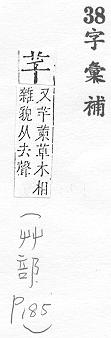 38字彙補
芊
又芊萰草木相
雜貌从去聲
(艸部
P185)